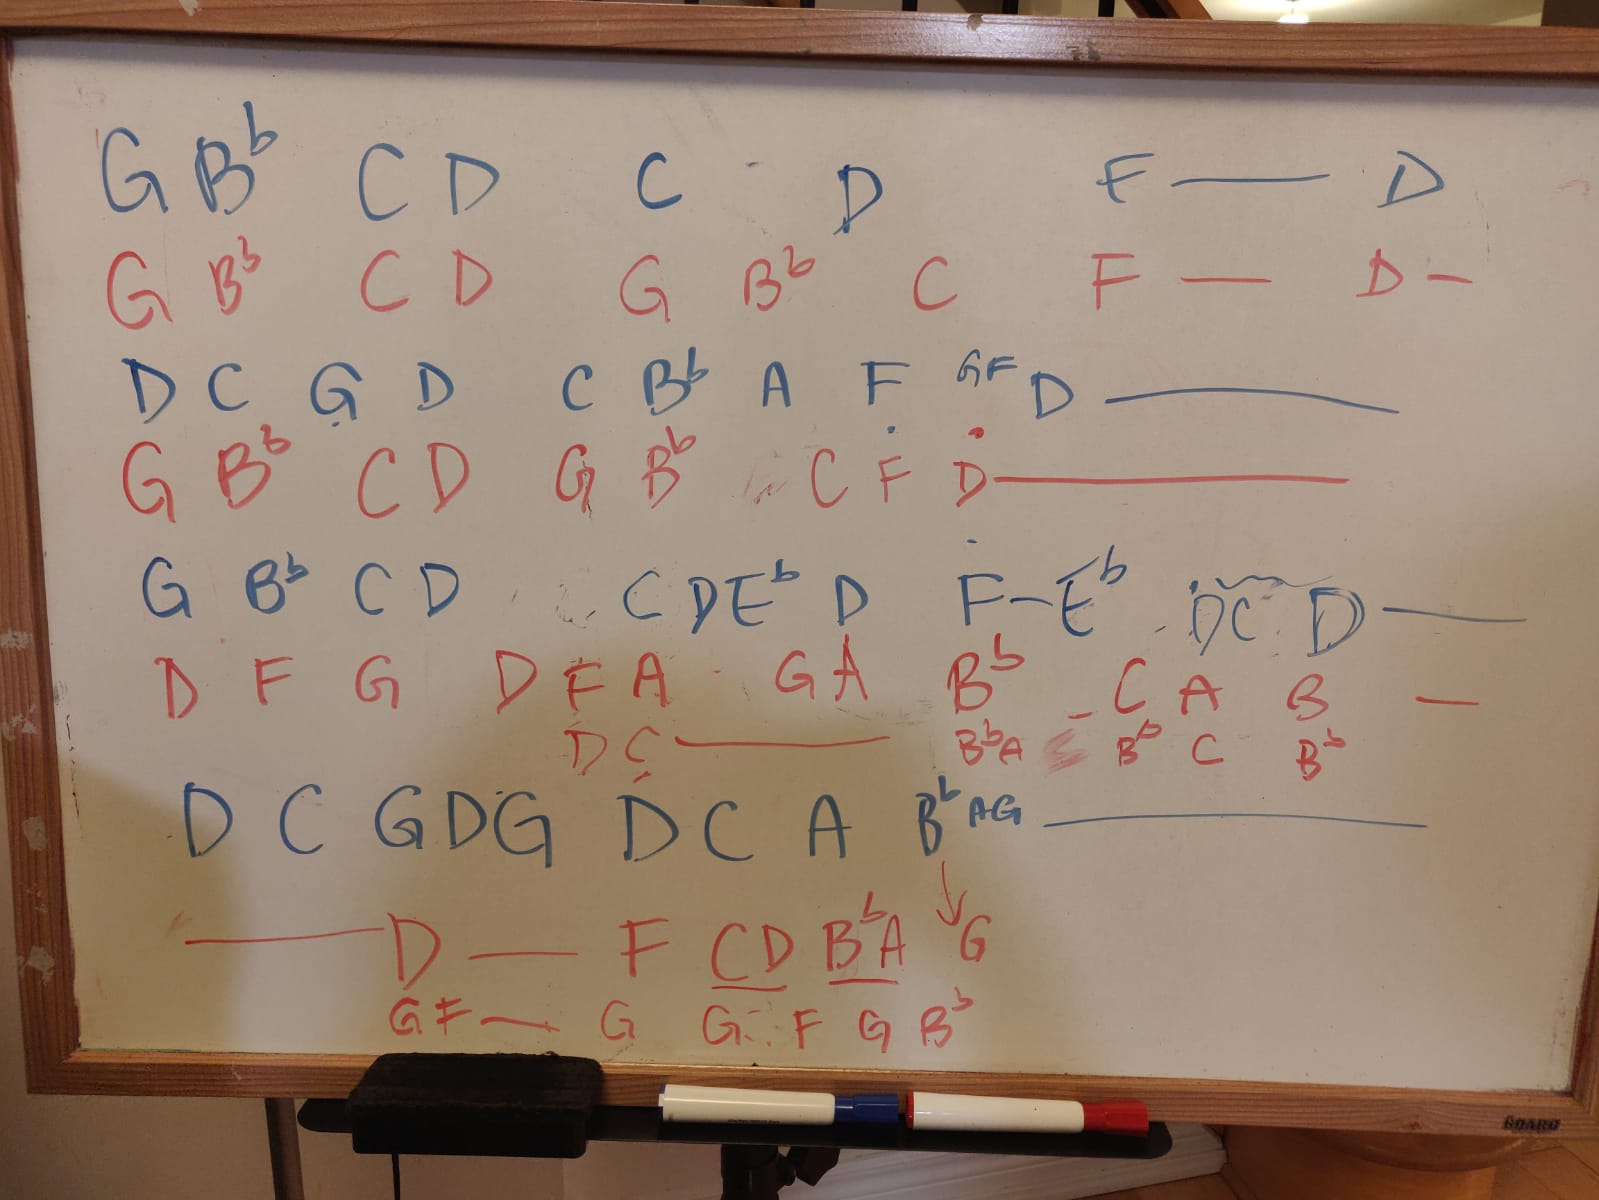 G B♭ C D C D F — D
G B♭ C D G B♭ C F — D —
D C G D C B♭ A F GF D —
G B♭ C D G B♭ C F D —
G B♭ C D C D E♭ D F — E♭ DC D —
D F G D F A G A B♭ — C A B —
D C — B♭A B♭ C B♭
D C G D G D C A B♭ AG —
— D — F CD B♭A ↓ G
GF — G G F G B♭
BOARD